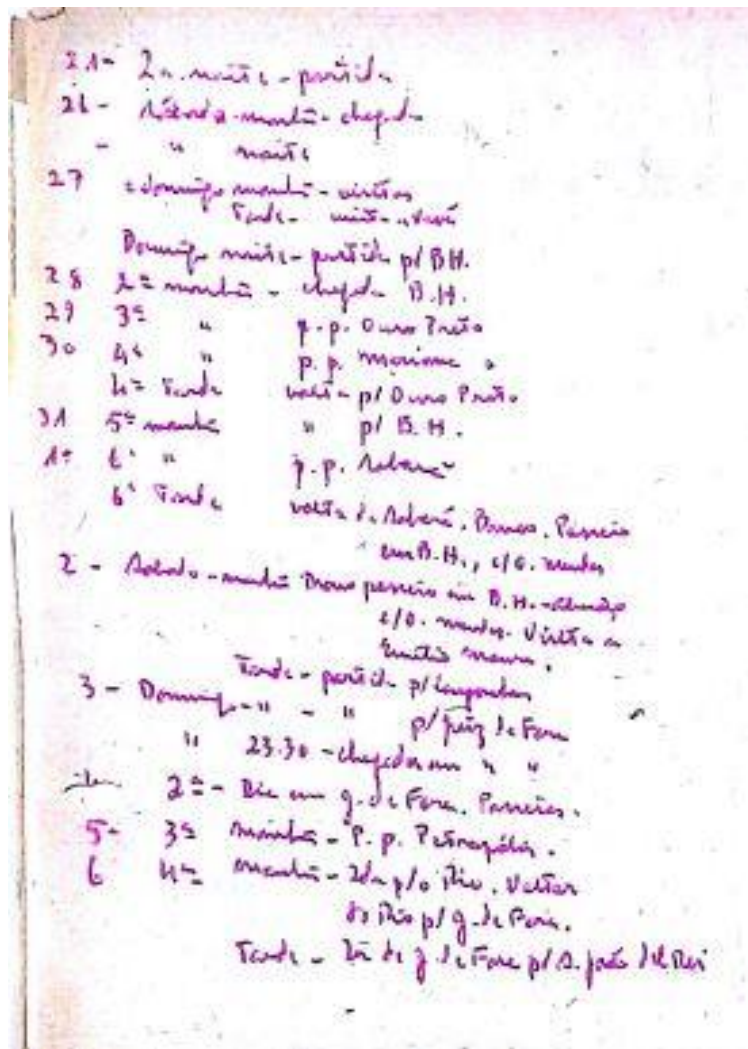 21- 2a. noite - partida
26 - Sábado - manhã - chegada
- " noite
27 domingo manhã - visitas
Tarde -
Domingo noite - partida p/ BH.
28 2ª manhã - chegada B.H.
29 3ª " p.p. Ouro Preto
30 4ª " p.p. Mariana
4ª Tarde volta p/ Ouro Preto
31 5ª manhã " p/ B.H.
1º 6ª " p.p. Sabará
6ª Tarde volta de Sabará. Passeio
em B.H., c/ O. Mendes
2 - Sábado - manhã passeio em B.H. - almoço
c/ O. Mendes. Visita a
Emilio Moura.
Tarde - partida p/ Congonhas
3 - Domingo - " - " p/ Juiz de Fora
" 23.30 - chegada em " "
2ª - Dia em J. de Fora. Passeios.
5 - 3ª Manhã - P.p. Petrópolis.
6 4ª Manhã - Ida p/ o Rio. Voltar
do Rio p/ J. de Fora.
Tarde - de J. de Fora p/ S. João del Rei